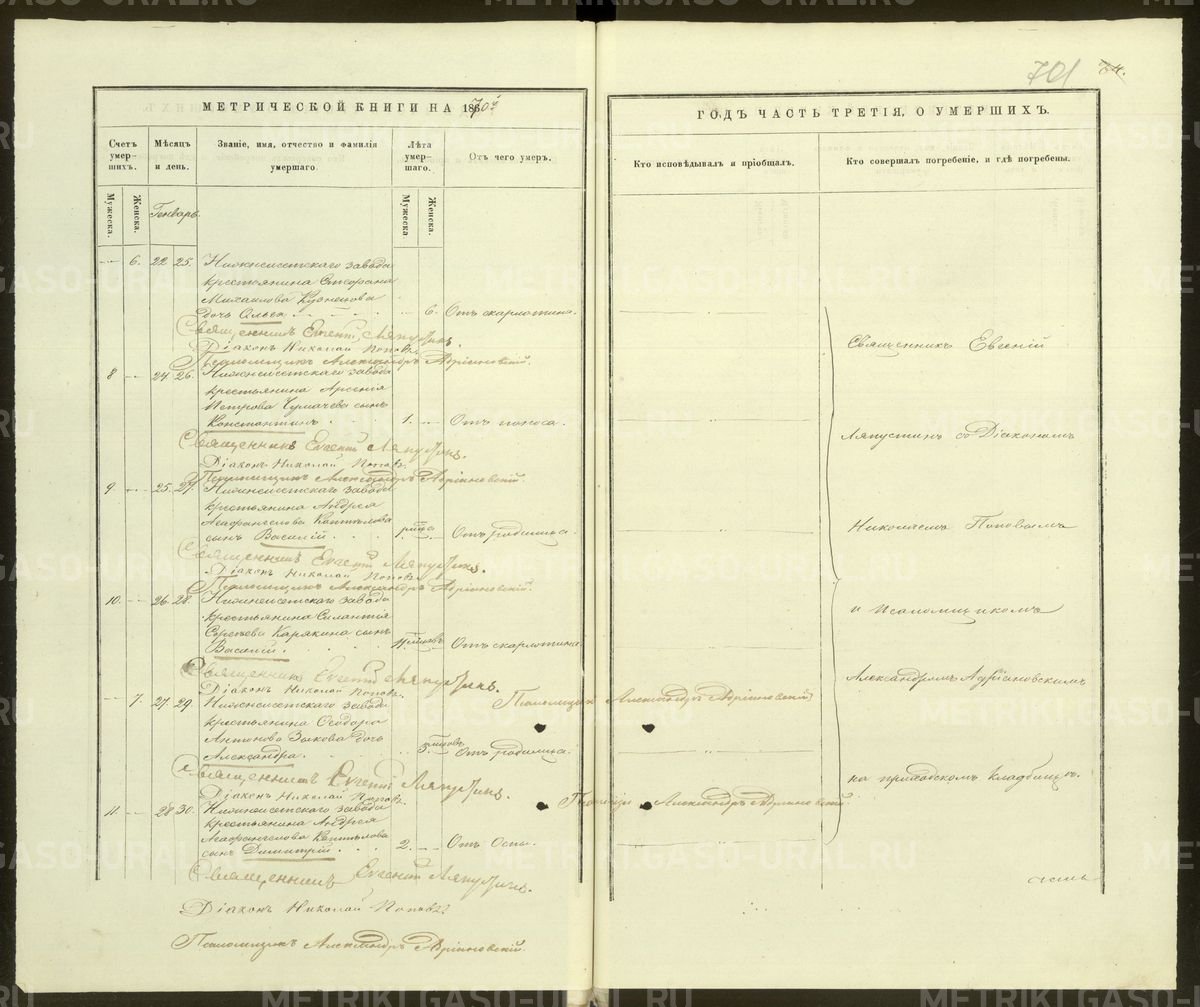 701
74.
МЕТРИЧЕСКОЙ КНИГИ НА 1870й
ГОДЪ ЧАСТЬ ТРЕТІЯ, О УМЕРШИХЪ.
Счетъ умер-
шихъ.
Мѣсяцъ
и день.
Званіе, имя, отчество и фамилія
умершаго.
Лѣта
умер-
шаго.
Отъ чего умеръ.
Кто исповѣдывалъ и пріобщалъ.
Кто совершалъ погребеніе, и гдѣ погребены.
Мужеска.
Женска.
Генварь.
Мужеска.
Женска.
6. 22 25. Нижнеисетскаго завода
крестьянина Стефана
Михаилова Кузнецова
дочь Ольга 6. Отъ скарлотина.
Священникъ Евгеній Ляпустинъ.
Діаконъ Николай Поповъ.
Псаломщикъ Александръ Адріановскій.
8 24. 26. Нижнеисетскаго завода
крестьянина Арсенія
Петрова Чумачева сынъ
Константинъ 1. Отъ поноса.
Священникъ Евгеній Ляпустинъ.
Діаконъ Николай Поповъ.
Псаломщикъ Александръ Адріановскій.
9. 25. 27. Нижнеисетскаго завода
крестьянина Андрея
сынъ Василій Отъ родимца.
Священникъ Евгеній Ляпустинъ.
Діаконъ Николай Поповъ.
Псаломщикъ Александръ Адріановскій.
10. 26. 28. Нижнеисетскаго завода
крестьянина Силантія
Сергѣева Карякина сынъ
Василій. Отъ скарлотина.
Священникъ Евгеній Ляпустинъ.
Діаконъ Николай Поповъ.
Псаломщикъ Александръ Адріановскій
7. 27. 29. Нижнеисетскаго завода
крестьянина Ѳеодора
Антонова Зыкова дочь
Александра. Отъ родимца.
Священникъ Евгеній Ляпустинъ.
Діаконъ Николай Поповъ.
Псаломщикъ Александръ Адріановскій.
11. 28 30. Нижнеисетскаго завода
крестьянина Андрея
сынъ Димитрій 2. Отъ Оспы.
Священникъ Евгеній Ляпустинъ.
Діаконъ Николай Поповъ
Псаломщикъ Александръ Адріановскій.
Священникъ Евгеній
Ляпустинъ съ Діакономъ
Николаемъ Поповымъ
и Псаломщикомъ
Александромъ Адріановскимъ
на приходскомъ кладбищѣ.
METRIKI.GASO-URAL.RU